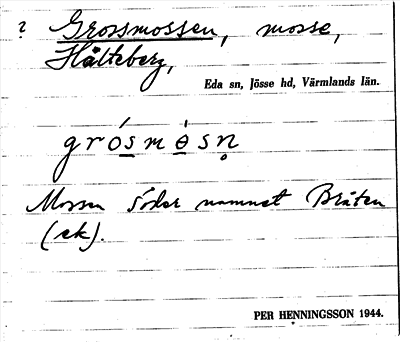 ? Grossmossen, mosse,
Hålteberg,
Eda sn, Jösse hd, Värmlands län.
grósmòsn̥
Mossen söder namnet Bråten
(ek).
PER HENNINGSSON 1944.